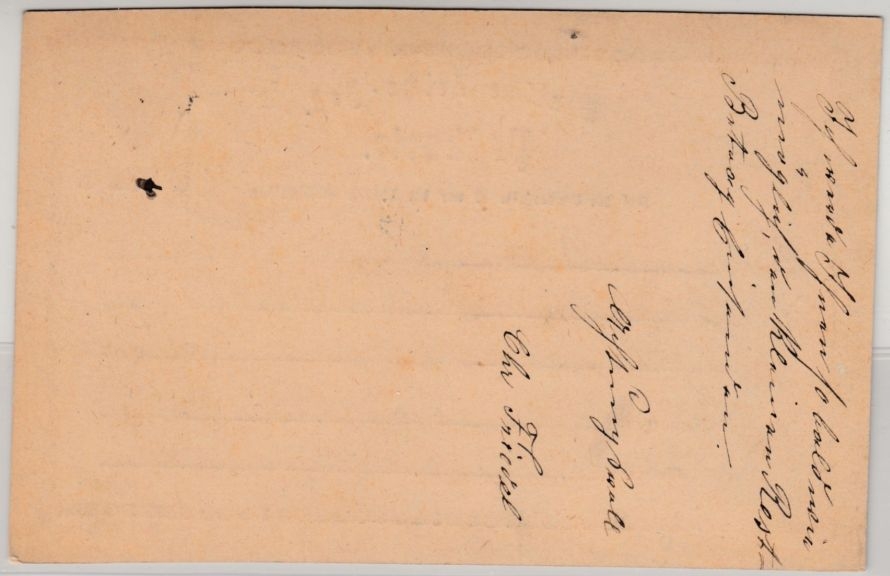 Ich werde Ihnen so bald wie
möglich, den kleinen Rest-
Betrag Einsenden.
Achtungsvoll
Chr Friedel